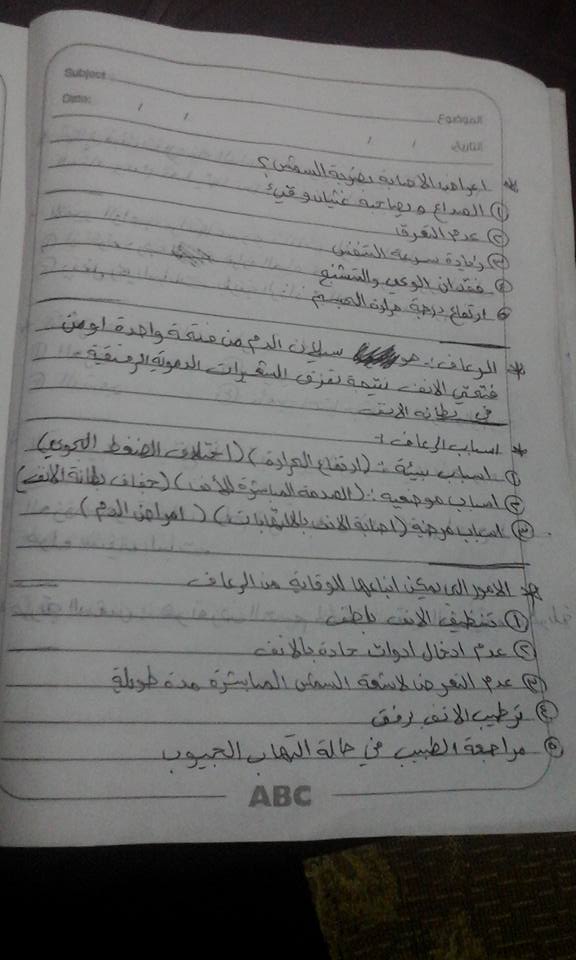 Subject:
Date: / /
الموضوع:
التاريخ: / /
* اعراض الاصابة بضربة الشمس ؟
① الصداع ويصاحبه غثيان وقيء
② عدم التعرق
③ زيادة سرعة التنفس
④ فقدان الوعي والتشنج
⑤ ارتفاع درجة حرارة الجسم
* الرعاف :- هو سيلان الدم من فتحة واحدة او من
فتحتي الانف نتيجة تمزق الشعيرات الدموية الرقيقة
في بطانة الانف
* اسباب الرعاف :-
① اسباب بيئية : (ارتفاع الحرارة) (اختلاف الضغط الجوي)
② اسباب موضعية : (الصدمة المباشرة للأنف) (جفاف بطانة الانف)
③ اسباب مرضية (اصابة الانف بالالتهابات) (امراض الدم)
* الامور التي يمكن اتباعها للوقاية من الرعاف
① تنظيف الانف بلطف
② عدم ادخال ادوات حادة بالانف
③ عدم التعرض لاشعة الشمس المباشرة مدة طويلة
④ ترطيب الانف برفق
⑤ مراجعة الطبيب في حالة التهاب الجيوب
ABC